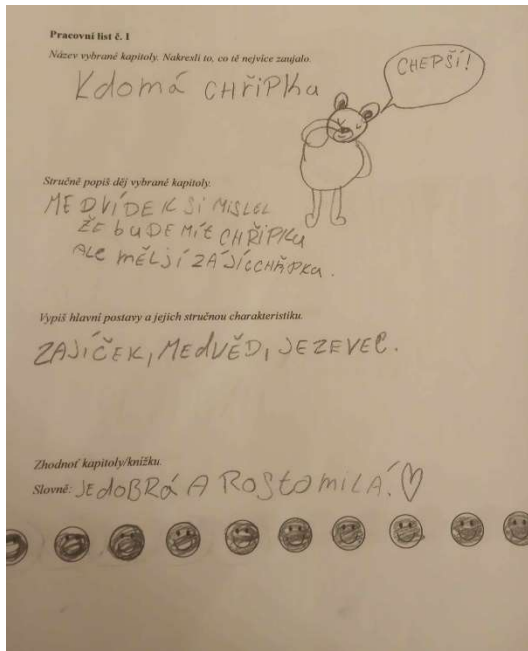 Pracovní list č. 1
Název vybrané kapitoly. Nakresli to, co tě nejvíce zaujalo.
Kdomá CHŘiPKa
CHEPŠÍ!
Stručně popiš děj vybrané kapitoly.
MEDVÍDEK SI MISLEL
ŽE buDE MÍt CHŘiPKu
ALE mĚLJÍ ZAJÍCCHŘiPKu.
Vypiš hlavní postavy a jejich stručnou charakteristiku.
ZAJÍČEK, MEdVĚD, JEZEVEC.
Zhodnoť kapitoly/knížku.
Slovně: JE dOBRÁ A ROStomiLÁ! ♡